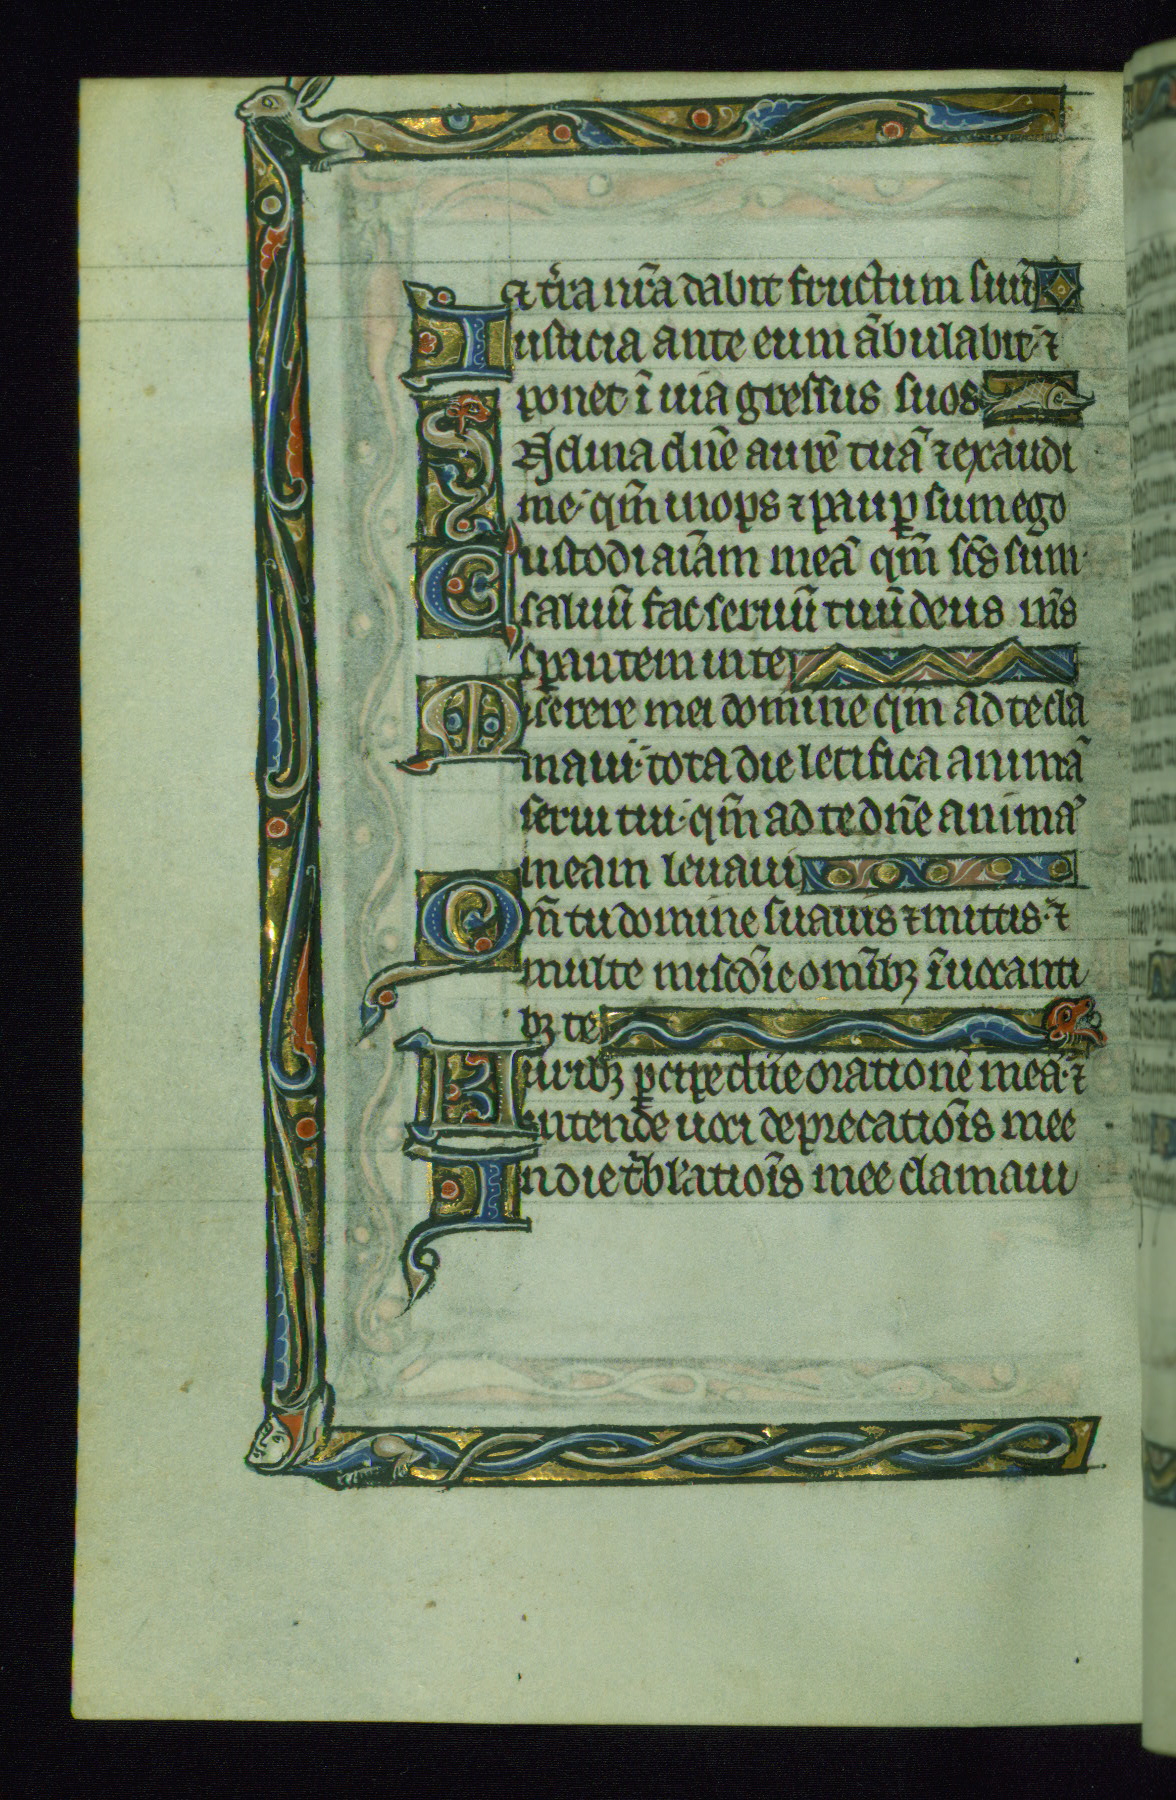 et t̾ra nr̄a dabit fructum suū
Iusticia ante eum ābulabit· ⁊
ponet ī uia gressus suos
Inclina dn̄e aurē tuā ⁊ exaudi
me· qm̄ inops ⁊ paup̲ sum ego
Custodi aīam meā qm̄ sc̄s sum·
saluū fac seruū tuū deus m̄s
sp̲antem in te
Miserere mei domine qm̄ ad te cla
maui· tota die letifica animā
serui tui· qm̄ ad te dn̄e animā
meam leuaui
Qm̄ tu domine suauis ⁊ mittis· ⁊
multe misc̄die omīb; īuocanti
b; te
Aurib; p̲cipe dn̄e orationē meā· ⁊
intende uoci deprecatiōīs mee
In die t̾b̄latioīs mee clamaui